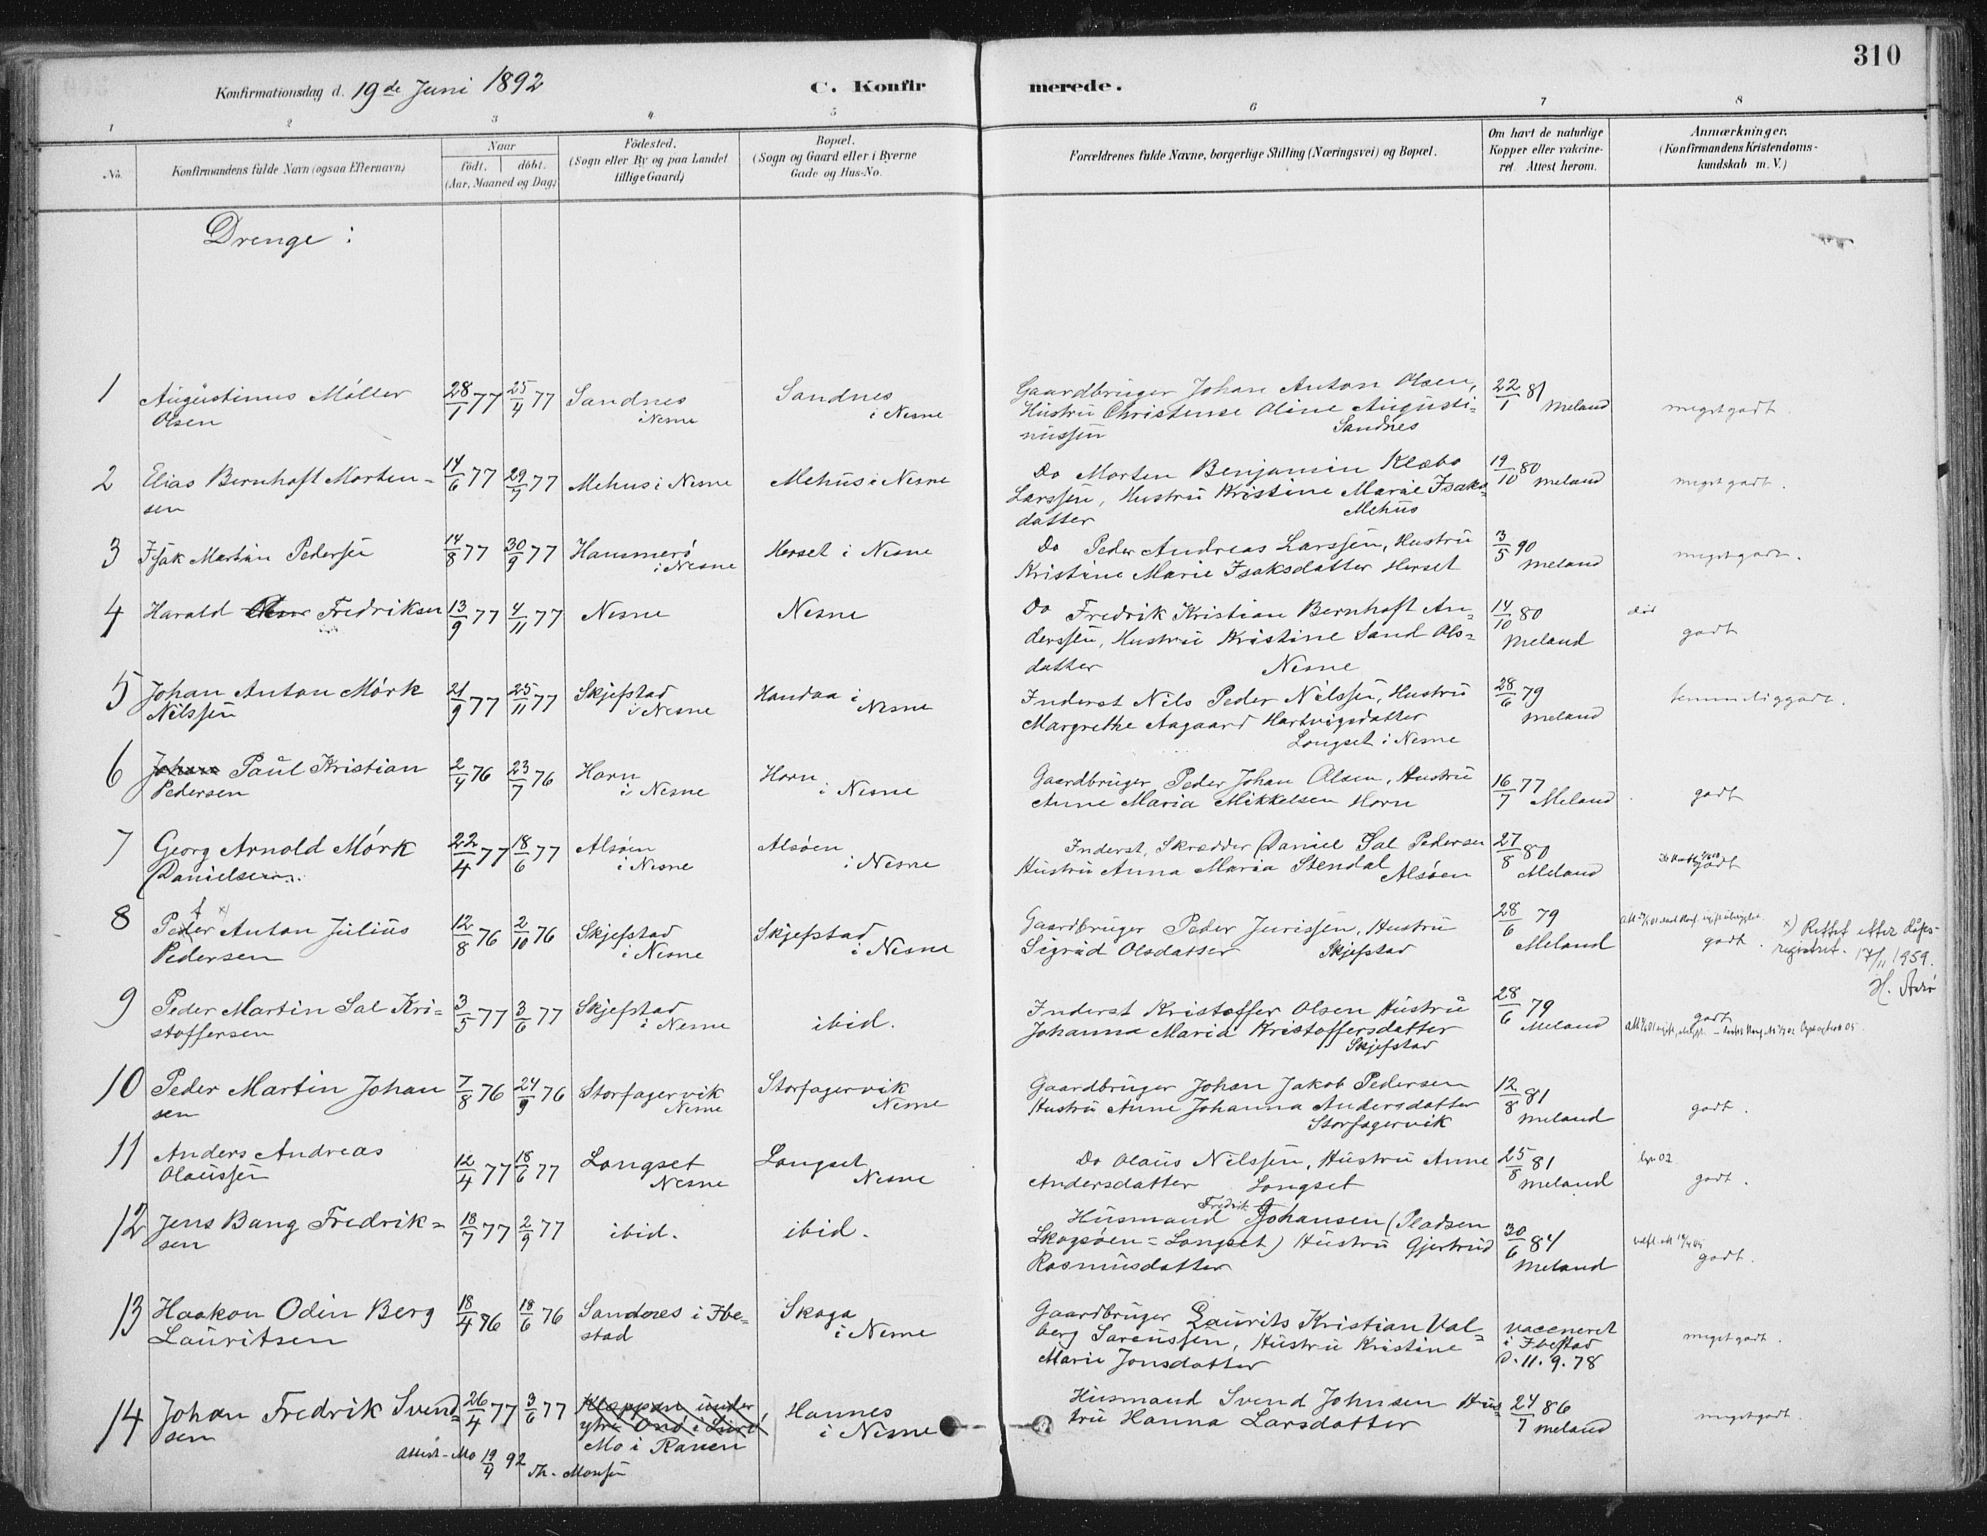 310
Konfirmationsdag d. 19de Juni 1892
C. Konfir merede.
1 2 3 4 5 6 7 8
No.
Konfirmandens fulde Navn (ogsaa Efternavn)
Naar
födt. döbt.
(Aar, Maaned og Dag)
Födested.
(Sogn eller By og paa Landet
tillige Gaard)
Bopæl.
(Sogn og Gaard eller i Byerne
Gade og Hus-No.
Forældrenes fulde Navne, borgerlige Stilling (Næringsvei) og Bopæl.
Om havt de naturlige
Kopper eller vakcine-
ret. Attest herom.
Anmærkninger.
(Konfirmandens Kristendoms-
kundskab m. V.)
Drenge:
1 Augustinus Möller 28/1 77 25/4 77 Sandnes Sandnes Gaardbruger Johan Anton Olsen, 22/1 81 Meland megetgodt
Olsen i Nesne i Nesne Hustru Christense Oline Augusti-
nussen Sandnes
2 Elias Bernhoft Morten- 14/6 77 29/7 77 Mehus i Nesne Mehus i Nesne Do Morten Benjamin Klæbo 19/10 80 Meland megetgodt.
sen Larssen, Hustru Kristine Marie Isaks-
datter Mehus
3 Isak Martin Pedersen 14/8 77 30/9 77 Hammerö Herset i Nesne Do Peder Andreas Larssen, Hustru 3/5 90 Meland megetgodt.
i Nesne Kristine Marie Isaksdatter Herset
4 Harald Fredriksen 13/9 77 4/11 77 Nesne Nesne Do Fredrik Kristian Bernhoft An- 14/10 80 död
derssen, Hustru Kristine Sand Ols- Meland godt
datter Nesne
5 Johan Anton Mörk 21/9 77 25/11 77 Skjefstad Handaa i Inderst Nils Peder Nilssen, Hustru 28/6 79 temmeliggodt.
Nilssen i Nesne Nesne Margrethe Aagaard Hartvigsdatter Meland
Longset i Nesne
6 Johan Paul Kristian 2/4 76 23/7 76 Horn Horn Gaardbruger Peder Johan Olsen, Hustru 16/7 77 godt
Pedersen i Nesne i Nesne Anne Maria Mikkelsen Horn Meland
7 Georg Arnold Mörk 22/4 77 18/6 77 Alsöen Alsöen Inderst, Skrædder Daniel Sal Pedersen 27/8 80 godt
Danielsen i Nesne i Nesne Hustru Anna Maria Stendal Alsöen Meland
8 Peder Anton Julius 12/8 76 2/10 76 Skjefstad Skjefstad Gaardbruger Peter Jurissen, Hustru 28/6 79 godt. x) Rettet etter dåps-
Pedersen i Nesne i Nesne Sigrid Olsdatter Skjefstad Meland registret. 17/11 1959.
9 Peder Martin Sal Kri- 3/5 77 3/6 77 Skjefstad ibid. Inderst Kristoffer Olsen Hustru 28/6 79 godt
stoffersen i Nesne Johanna Maria Kristoffersdatter Meland
Skjefstad
10 Peder Martin Johan 7/8 76 24/9 76 Storfagervik Storfagervik Gaardbruger Johan Jakob Pedersen 12/8 81 godt.
sen Nesne Nesne Hustru Anne Johanna Andersdatter Meland
Storfagervik
11 Anders Andreas 12/4 77 18/6 77 Longset Longset Do Olaus Nilssen, Hustru Anne 25/8 81 godt.
Olaussen Nesne Nesne Andersdatter Longset Meland
12 Jens Bang Fredrik- 18/7 77 2/9 77 ibid. ibid. Husmand Fredrik Johansen (Pladsen 30/6 84 godt.
sen Skogsöen = Longset) Hustru Gjertrud Meland
Rasmusdatter
13 Haakon Odin Berg 18/4 76 18/6 76 Sandnes i Ibe- Skoga Gaardbruger Laurits Kristian Val- vacceneret megetgodt.
Lauritsen stad i Nesne berg Sareussen, Hustru Kristine i Ibestad
Marie Jonsdatter d. 11.9.78
14 Johan Fredrik Svend- 26/4 77 3/6 77 Kloppan under Hannes Husmand Svend Johnsen Hus- 24/7 86 megetgodt.
sen ytre i Lurö i Nesne tru Hanna Larsdatter Meland
Mo i Ranen
Attest. Mo 19/4 92